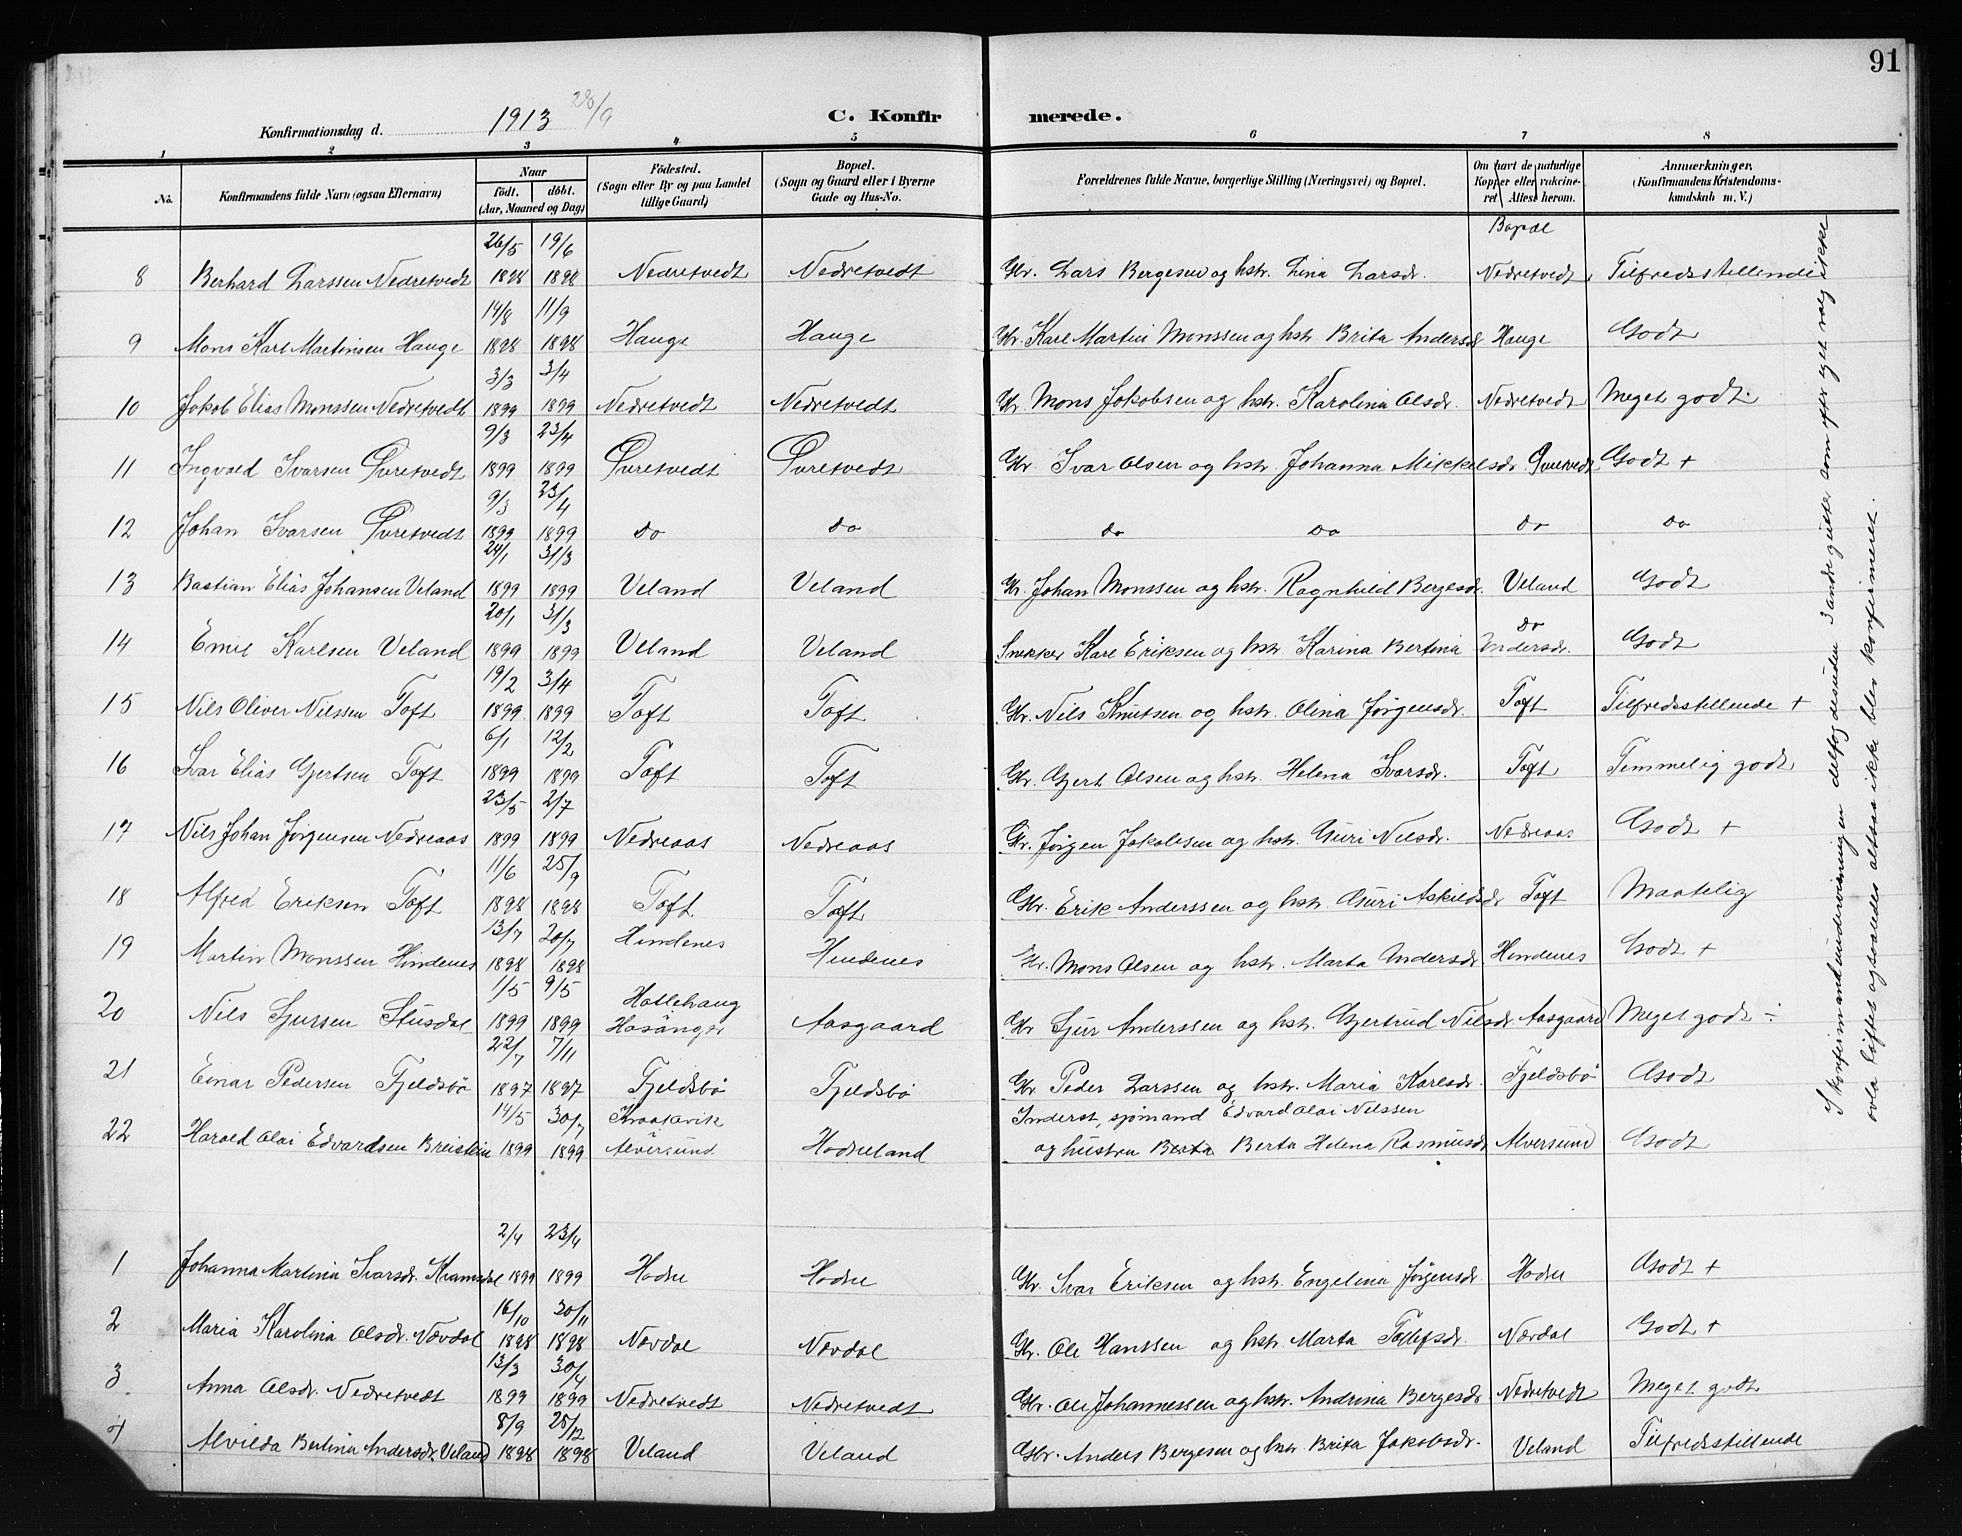 91
Konfirmationsdag d. 1913 28/9 C. Konfirmerede.
1 2 3 4 5 6 7 8
No. Konfirmandens fulde Navn (ogsaa Efternavn) Naar født. døbt. (Aar, Maaned og Dag) Födested. (Sogn eller By og paa Landet tillige Gaard) Bopæl. (Sogn og Gaard eller i Byerne Gade og Hus-No. Forældrenes fulde Navne, borgerlige Stilling (Næringsvei) og Bopæl. Om havt de naturlige Kopper eller vakcineret Attest herom. Anmærkninger, (Konfirmandens Kristendomskundskab m. V.)
Bopæl
26/5 19/6
8 Berhard Larssen Nedretvedt 1898 1898 Nedretvedt Nedretvedt Gbr. Lars Bergesen og hstr. Lina Larsdr. Nedretvedt Tilfredsstillende
14/8 11/9
9 Mons Karl Martinsen Hauge 1898 1898 Hauge Hauge Gbr. Karl Martin Monssen og hstr. Brita Andersdr. Hauge Godt
3/3 3/4
10 Jakob Elias Monssen Nedretvedt 1899 1899 Nedretvedt Nedretvedt Gbr. Mons Jakobsen og hstr. Karolina Olsdr. Nedretvedt Meget godt.
9/3 23/4
11 Ingvald Ivarsen Øvretvedt 1899 1899 Øvretvedt Øvretvedt Gbr. Ivar Olsen og hstr. Johanna Mikkelsdr. Øvretvedt Godt +
9/3 23/4
12 Johan Ivarsen Øvretvedt 1899 1899 do do do do do do
24/1 31/3
13 Bastian Elias Johansen Veland 1899 1899 Veland Veland Gbr. Johan Monssen og hstr. Ragnhild Bergesdr. Veland Godt
20/1 31/3 do
14 Emil Karlsen Veland 1899 1899 Veland Veland Snekker Karl Eriksen og hstr. Karina Bertina Andersdr. Godt
19/2 3/4
15 Nils Oliver Nilssen Toft 1899 1899 Toft Toft Gbr. Nils Knutsen og hstr. Olina Jørgensdr. Toft Tilfredsstillende +
6/1 12/2
16 Ivar Elias Gjertsen Toft 1899 1899 Toft Toft Gbr. Gjert Olsen og hstr. Helena Ivarsdr. Toft Temmelig godt
23/5 2/7
17 Nils Johan Jørgensen Nedreaas 1899 1899 Nedreaas Nedreaas Gbr. Jørgen Jakobsen og hstr. Guri Nilsdr. Nedreaas Godt +
11/6 25/9
18 Alfred Eriksen Toft 1898 1898 Toft Toft Gbr. Erik Anderssen og hstr. Guri Askildsdr Toft Maatelig
13/7 20/7
19 Martin Monssen Hindenes 1898 1898 Hindenes Hindenes Gbr. Mons Olsen og hstr. Marta Andersdr. Hindenes Godt +
1/5 9/5 Hollehaug
20 Nils Sjurssen Stusdal 1899 1899 Hosanger Aasgaard Gbr Sjur Anderssen og hstr. Gjertrud Nilsdr. Aasgaard Meget godt ÷
22/7 7/11
21 Einar Pedersen Fjeldsbø 1897 1897 Fjeldsbø Fjeldsbø Gbr Peder Larssen og hstr. Maria Karlsdr. Fjeldsbø Godt
14/5 30/7 Kraakevik Inderst, sjømand Edvard Olai Nilssen
22 Harald Olai Edvardsen Breistein 1899 1899 Alversund Hodneland og hustru Berta Berta Helena Rasmusdr Alversund Godt
2/4 23/4
1 Johanna Martina Ivarsdr. Kramsdal 1899 1899 Hodne Hodne Gbr. Ivar Eriksen og hstr. Engelina Jørgensdr. Hodne Godt +
16/10 30/11
2 Maria Karolina Olsdr. Nævdal 1898 1898 Nævdal Nævdal Gbr. Ole Hanssen og hstr. Marta Tollefsdr. Nævdal Godt +
13/3 30/4
3 Anna Olsdr. Nedretvedt 1899 1899 Nedretvedt Nedretvedt Gbr. Ole Johannessen og hstr. Andrina Bergesdr. Nedretvedt Meget godt
8/9 25/12
4 Alvilda Bertina Andersdr. Veland 1898 1898 Veland Veland Gbr. Anders Bergesen og hstr. Brita Jakobsdr. Veland Tilfredsstillende
I konfirmantundervisningen deltog desuden 3 andre gutter som efter eget valg ikke
avla løftet og saaledes altsaa ikke blev konfirmeret.